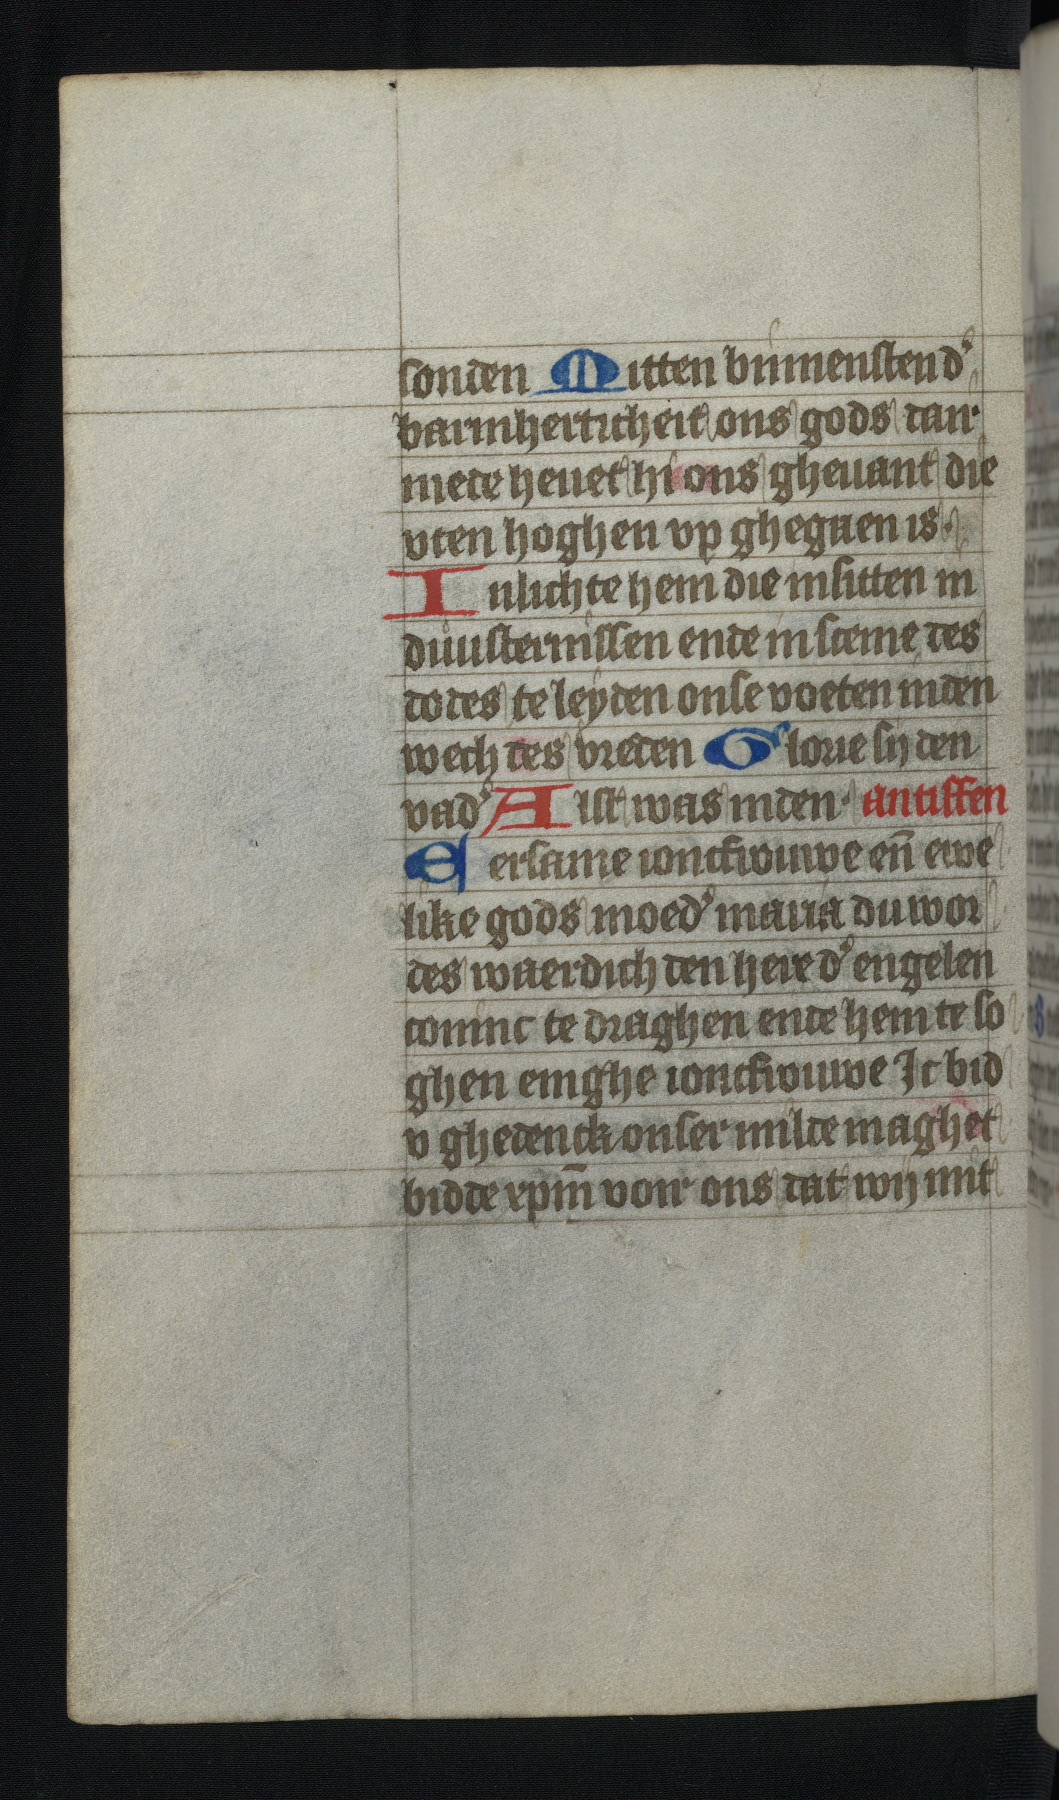 sonden Mitten binnensten d'
barmherticheit ons gods dair
mede heuet hi ons gheuant die
vten hoghen vp ghegaen is
Inlichte hem die insitten in
duusternissen ende in sceme des
dodes te leyden onse voeten inden
wech des vreden Glorie sij den
vad' Alst was inden antiffen
Eersame ioncfrouwe en̄ ewe
like gods moed' maria du wor
des waerdich den here d' engelen
coninc te draghen ende hem te so
ghen enighe ioncfrouwe Ic bid
v ghedenck onser milde maghet
bidde xpm̄ voir ons dat wij mit